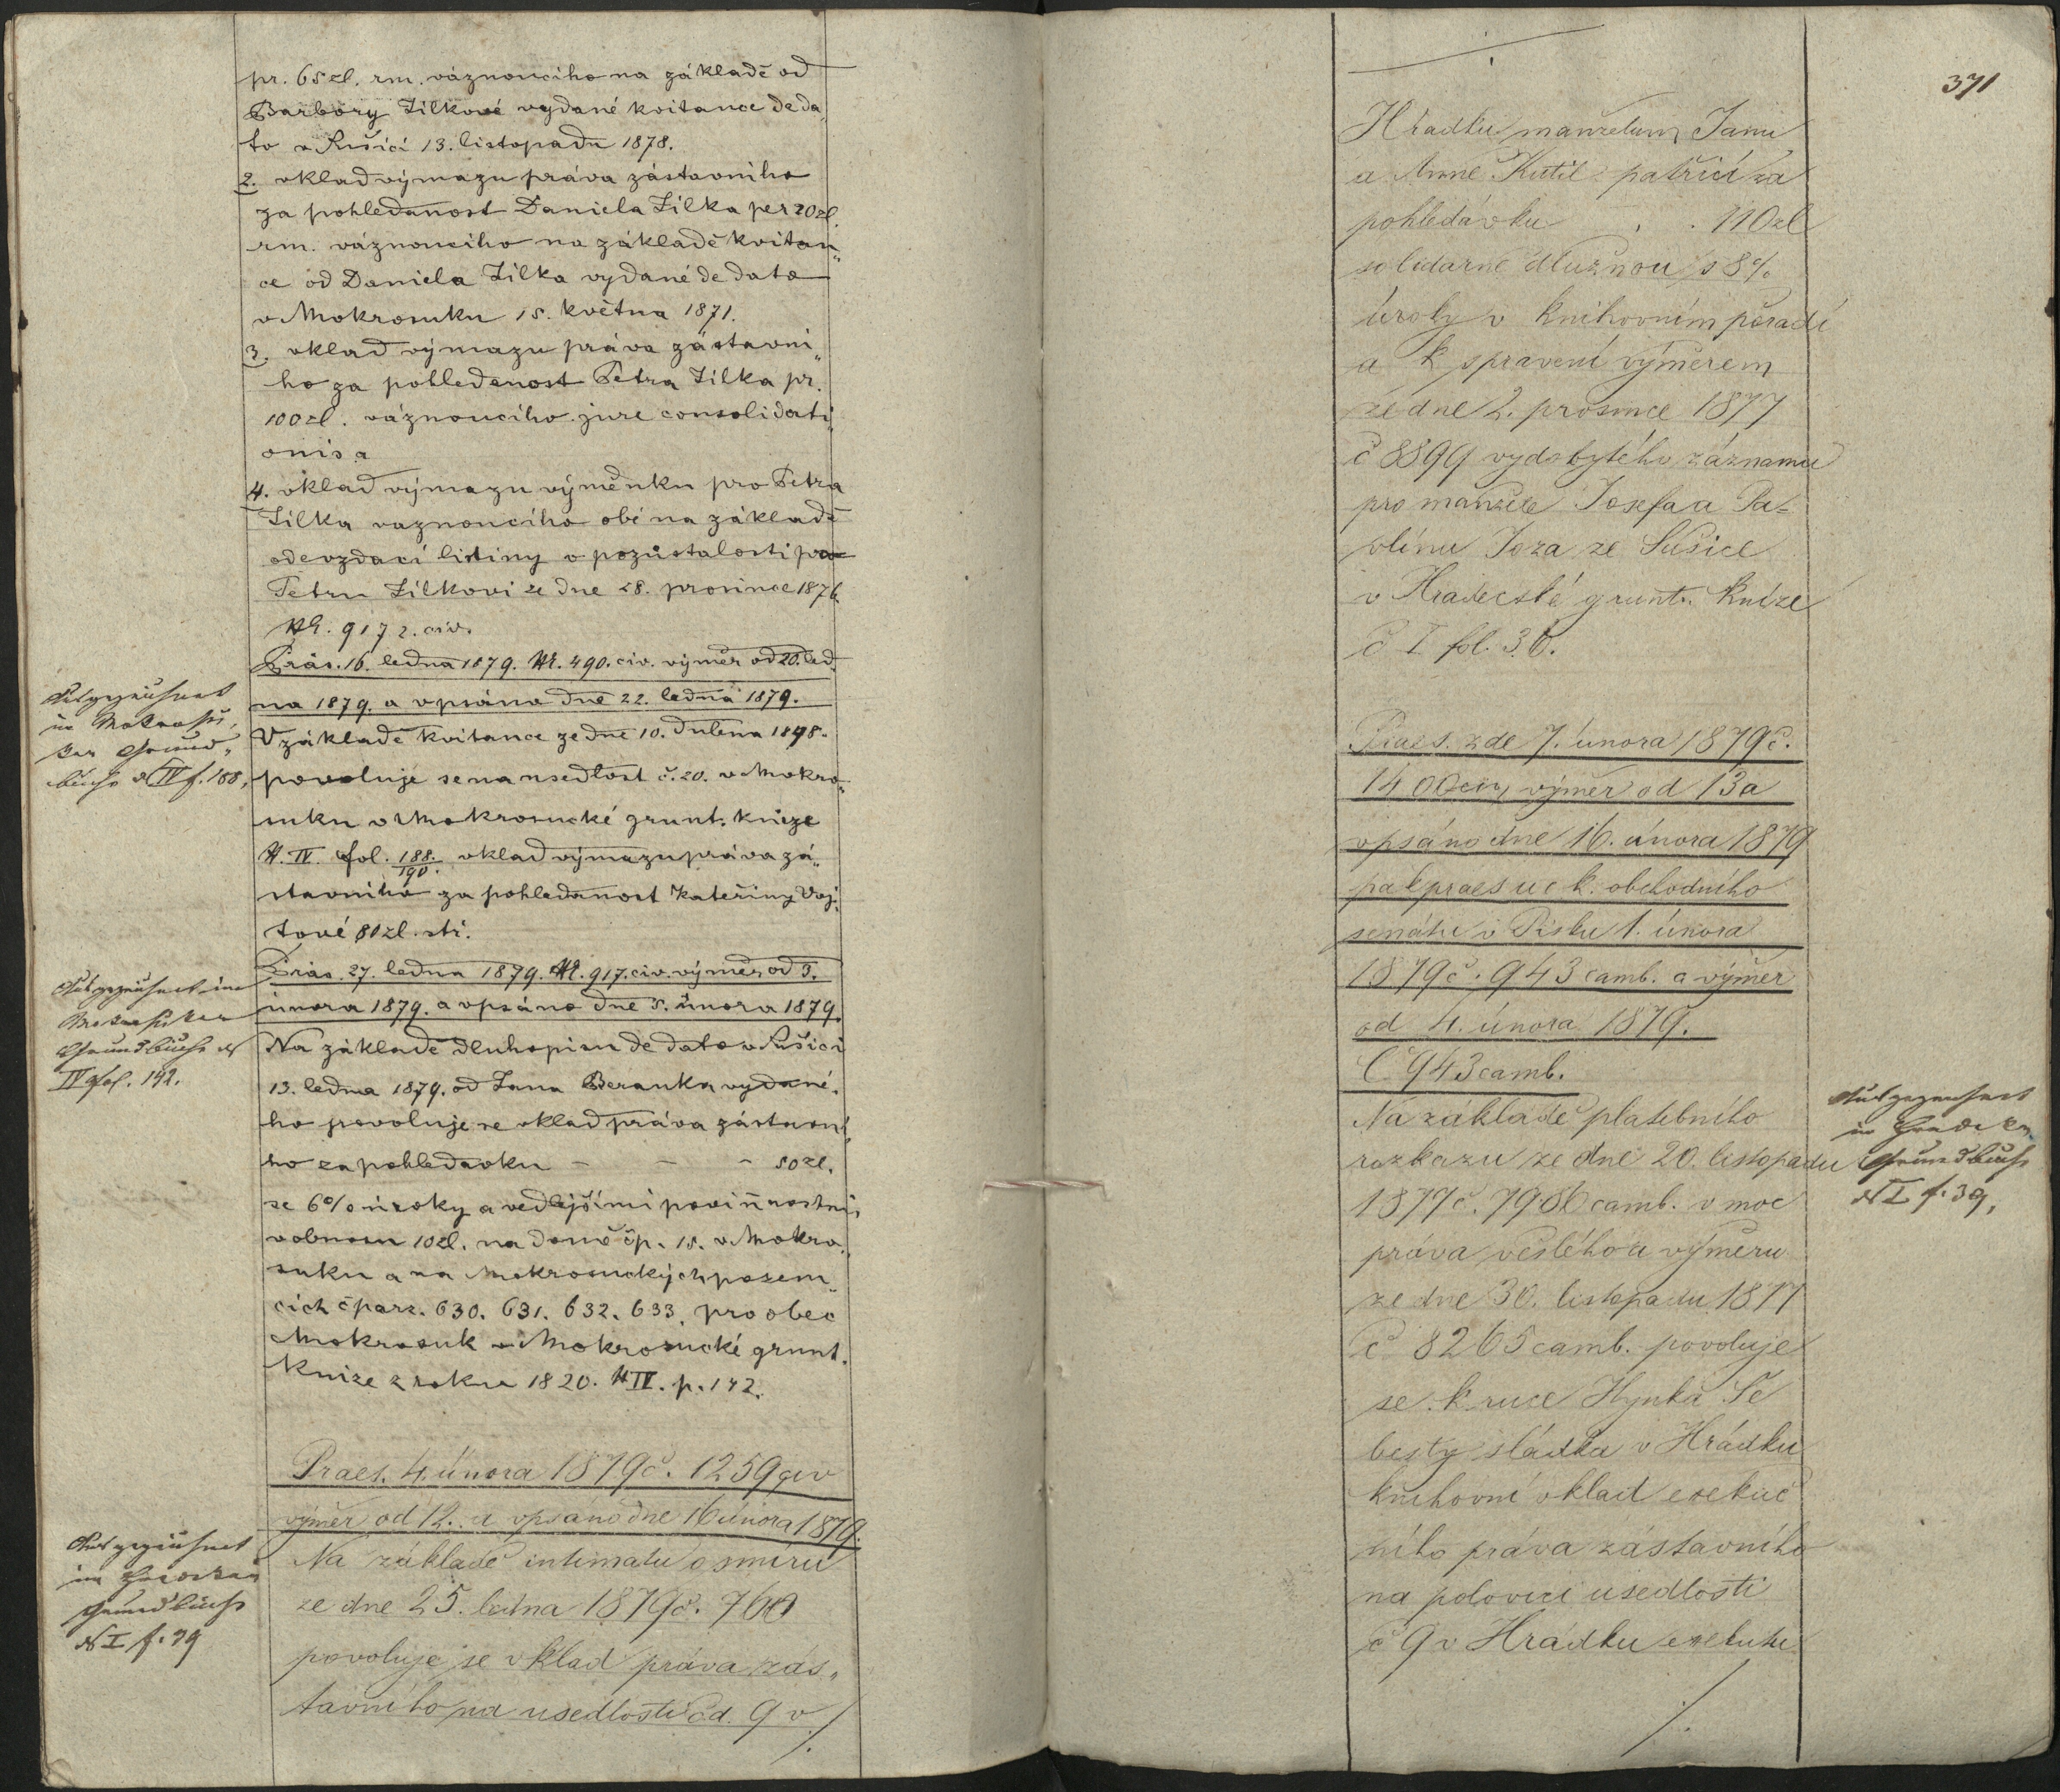 pr. 65 zl. rm. váznoucího na základě od
Barbory Zilkové vydané kvitance de da„
to v Sušici 13. listopadu 1878.
2. vklad výmazu práva zástavního
za pohledanost Daniela Zilka per 20 zl.
rm. váznoucího na základě kvitan„
ce od Daniela Zilka vydané de dato
v Mokrosuku 15. května 1871.
3. vklad výmazu práva zástavni„
ho za pohledanost Petra Zilka pr.
100 zl. váznoucího jure consolidati„
onis a
4. vklad výmazu výměnku pro Petra
Zilka vaznoucího obé na základě
odevzdací listiny v pozůstalosti po
Petru Zilkovi ze dne 28. prosince 1876
N. 9172. civ.
Präs. 16. ledna 1879. N. 490. civ. výměr od 20. led„
na 1879. a vpsáno dne 22. ledna 1879.
V základě kvitance ze dne 10. dubna 1898.
povoluje se na usedlost č. 20. v Mokro„
suku v Mokrosucké grunt. knize
N. IV. fol. 188./190. vklad výmazu práva zá„
stavního za pohledanost Kateřiny Voj„
tové 80 zl. stř.
Präs. 27. ledna 1879. N. 917. civ. výměr od 3.
února 1879. a vpsáno dne 5. února 1879.
Na základě dluhopisu de dato v Sušici
13. ledna 1879. od Jana Beranka vydané„
ho povoluje se vklad práva zástavní„
ho za pohledavku - - - 50 zl.
se 6% úroky a vedlejšími povinnostmi
v obnosu 10 zl. na domě čp. 15. v Mokro„
suku a na Mokrosuckých pozem„
cích č parz. 630. 631. 632. 633. pro obec
Mokrosuk v Mokrosucké grunt.
knize z roku 1820. N IV. p. 142.
Praes. 4. února 1879 č. 1259 civ
výměr od 12. a vpsáno dne 16 února 1879.
Na základě intimatu o smíru
ze dne 25. ledna 1879 č. 760
povoluje se vklad práva zás„
tavního na usedlosti čd. 9 v
./.
Ausgezeichnet
im Mokrosu„
ker Grund„
buche N IV f. 188.
Ausgezeichnet im
Mokrosuker
Grundbuche N
IV fol. 142.
Ausgezeichnet
im
Grundbuche
N I f. 39
371
Hradku manželum Janu
a Anně Kutil patřící za
pohledávku . . 110 zl
solidarně dlužnou s 8%
úroky v knihovním pořadí
a k spravení výměrem
ze dne 2. prosince 1877
č 8899 vydobytého záznamu
pro manžele Josefa a Pa-
vlínu Joza ze Sušice
v Hradecské grunt. knize
č I fol. 36.
Praes. zde 7. února 1879 č.
1400 civ, výměr od 13 a
vpsáno dne 16. února 1879
pak praes u c k. obchodního
senátu v Písku 1. února
1879 č. 943 camb. a výměr
od 4. února 1879.
Č 943 camb.
Na základě platebního
rozkazu ze dne 20. listopadu
1877 č. 7986 camb. v moc
práva vešlého a výměru
ze dne 30. listopadu 1877
č 8265 camb. povoluje
se k ruce Hynka Še
besty sládka v Hrádku
knihovní vklad exekuč
ního práva zástavního
na polovici usedlosti
č 9 v Hrádku exekutu
./.
Ausgezeichnet
im
Grundbuche
N I f. 39.